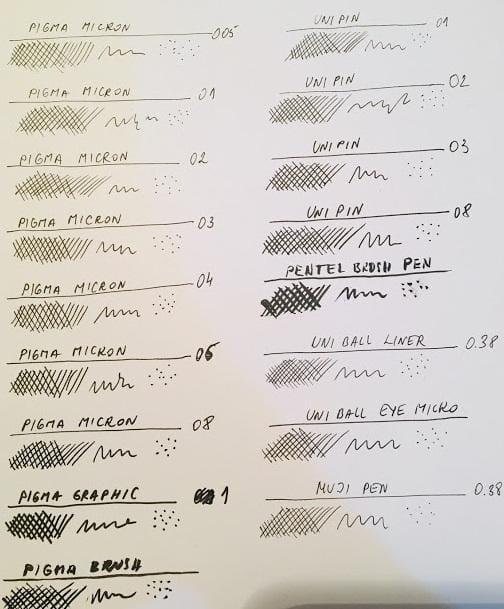 PIGMA MICRON 005
PIGMA MICRON 01
PIGMA MICRON 02
PIGMA MICRON 03
PIGMA MICRON 04
PIGMA MICRON 05
PIGMA MICRON 08
PIGMA GRAPHIC 1
PIGMA BRUSH
UNI PIN 01
UNI PIN 02
UNI PIN 03
UNI PIN 08
PENTEL BRUSH PEN
UNI BALL LINER 0.38
UNI BALL EYE MICRO
MUJI PEN 0.38